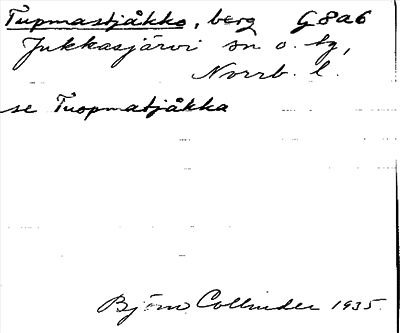 Tupmastjåkko, berg G8a6
Jukkasjärvi sn o. tg,
Norrb. l.
se Tuopmatjåkka
Björn Collinder 1935.